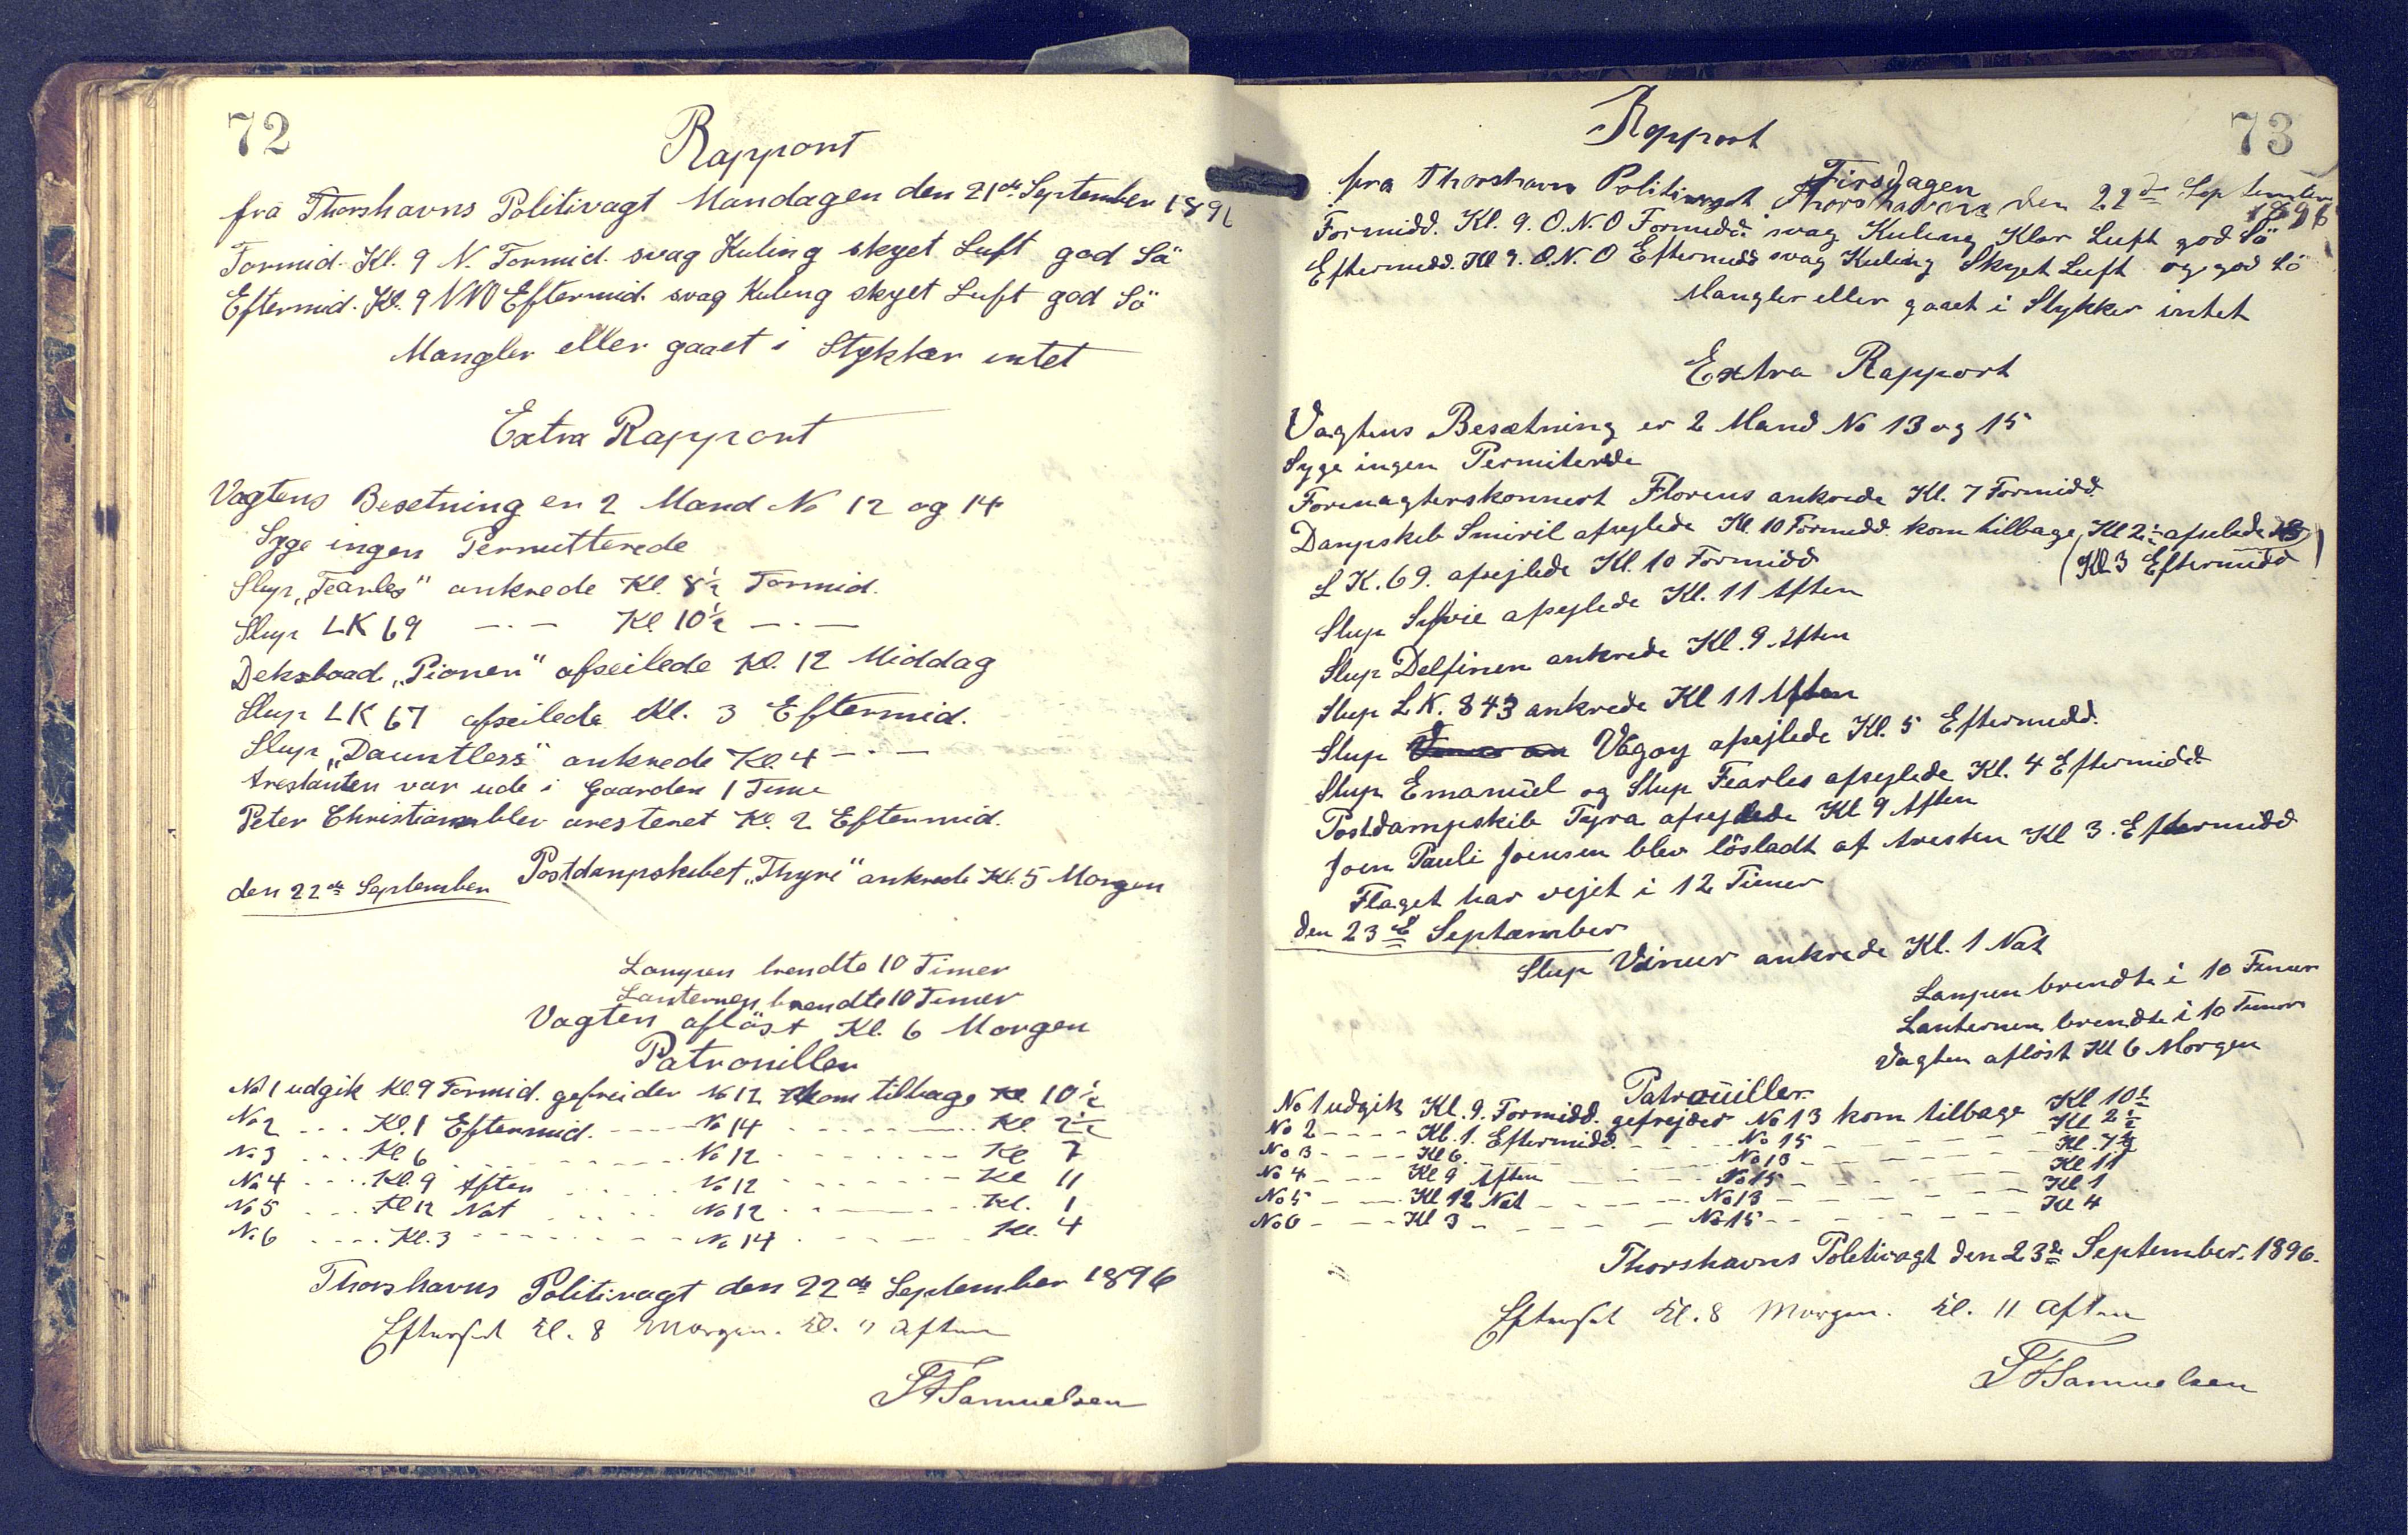 72
Rapport
fra Thorshavns Politivagt Mandagen den 21de September 189
Formid. Kl. 9 N. Formid. svag Kuling skyet Luft god Sö
Eftermid. Kl. 9 NNO Eftermid. svag Kuling skyet Luft god Sö
Mangler eller gaaet i Stykker intet
Extra Rapport
Vagtens Besetning er 2 Mand No 12 og 14
Syge ingen Permitterede
Slup „Fearles" ankrede Kl. 8½ Formid.
Slup LK 69 —·— Kl. 10½ —·—
Deksbaad „Pionen" afseilede Kl. 12 Middag
Slup LK 67 afseilede Kl. 3 Eftermid.
Slup „Dauntless" ankrede Kl. 4 —·—
Arestanten var ude i Gaarden 1 Time
Peter Christian blev aresteret Kl. 2 Eftermid.
den 22de September Postdampskibet „Thyra" ankrede Kl. 5 Morgen
Lampen brendte 10 Timer
Lanternen brendte 10 Timer
Vagten aflöst Kl. 6 Morgen
Patrouiller
No 1 udgik Kl. 9 Formid. gefreider No 12 kom tilbage Kl 10½
No 2 --- Kl. 1 Eftermid. --- No 14 --- Kl. 2½
No 3 --- Kl 6 --- No 12 --- Kl 7
No 4 --- Kl. 9 Aften --- No 12 --- Kl 11
No 5 --- Kl 12 Nat --- No 12 --- Kl. 1
No 6 --- Kl. 3 --- No 14 --- Kl. 4
Thorshavns Politivagt den 22de September 1896
Efterset Kl. 8 Morgen. Kl. 11 Aften
Samuelsen
73
Rapport
fra Thorshavn Politivagt Thorshavns Tirsdagen den 22de September 1896
Formidd. Kl. 9. O.N.O Formidd. svag Kuling Klar Luft god Sö
Eftermidd. Kl 9. O.N.O Eftermidd svag Kuling Skyet Luft og god Sö
Mangler eller gaaet i Stykker intet
Extra Rapport
Vagtens Besætning er 2 Mand No 13 og 15
Syge ingen Permiterede
Forvagterskonnert Florens ankrede Kl. 7 Formidd.
Dampskib Smiril afsejlede Kl. 10 Formidd. kom tilbage Kl 2½ afselede
(Kl 3 Eftermidd)
L K. 69. afsejlede Kl. 10 Formidd
Slup Sylvie afsejlede Kl. 11 Aften
Slup Delfinen ankrede Kl. 9 Aften
Slup L K. 843 ankrede Kl 11 Aften
Slup Vágoy afsejlede Kl. 5 Eftermidd.
Slup Emanuel og Slup Fearles afsejlede Kl. 4 Eftermidd.
Postdampskib Tyra afsejlede Kl 9 Aften
Joen Pauli Joensen blev lösladt af Aresten Kl 3. Eftermidd
Flaget har vejet i 12 Timer
den 23de Septæmber
Slup Vinur ankrede Kl. 1 Nat
Lampen brendte i 10 Timer
Lanternen brendte i 10 Timer
Vagten aflöst Kl 6 Morgen
Patrouiller
No 1 udgik Kl. 9. Formidd. gefrejder No 13 kom tilbage Kl 10½
No 2 --- Kl. 1. Eftermidd. --- No 15 --- Kl 2½
No 3 --- Kl 6. --- No 13 --- Kl. 7½
No 4 --- Kl 9 Aften --- No 15 --- Kl 11
No 5 --- Kl 12 Nat --- No 13 --- Kl 1
No 6 --- Kl 3 --- No 15 --- Kl 4
Thorshavns Politivagt den 23de September. 1896.
Efterset Kl. 8 Morgen. Kl. 11 Aften
Samuelsen